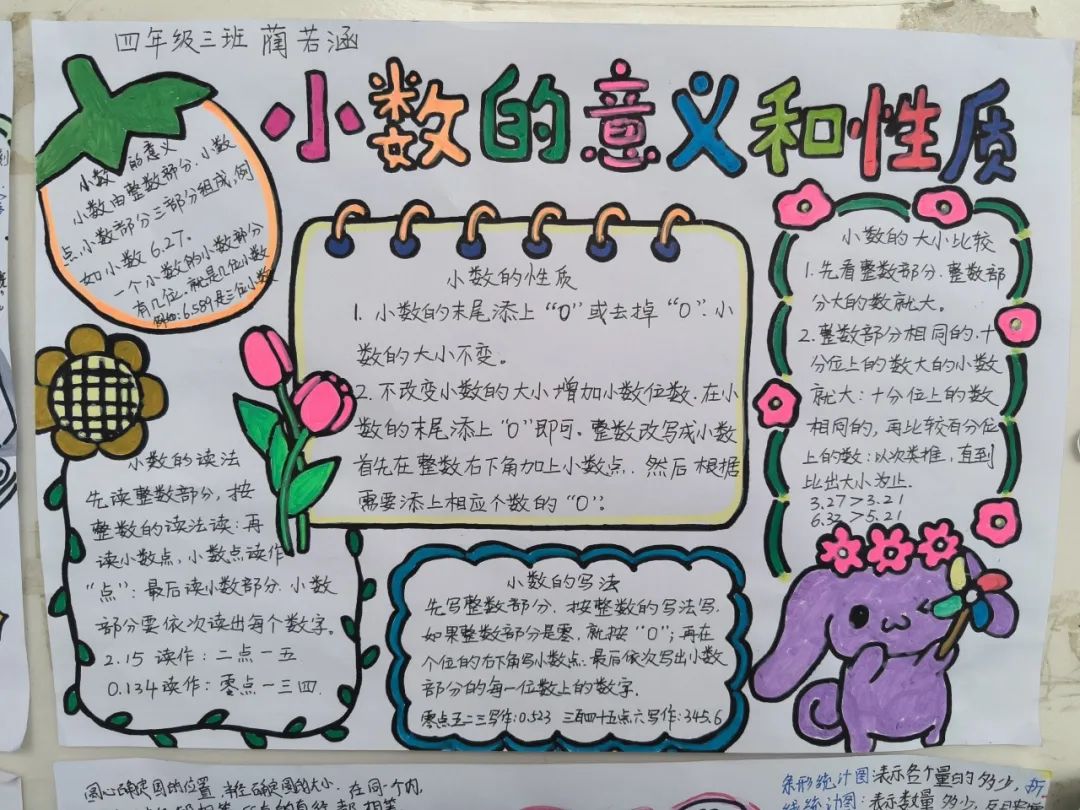 四年级三班 蔺若涵
小数的意义和性质
小数的意义
小数由整数部分、小数
点、小数部分三部分组成,例
如小数6.27。
一个小数的小数部分
有几位,就是几位小数
例如:6.589是三位小数
小数的性质
1. 小数的末尾添上“0”或去掉“0”,小
数的大小不变。
2. 不改变小数的大小增加小数位数,在小
数的末尾添上“0”即可。整数改写成小数
首先在整数右下角加上小数点,然后根据
需要添上相应个数的“0”。
小数的大小比较
1.先看整数部分,整数部
分大的数就大。
2.整数部分相同的,十
分位上的数大的小数
就大;十分位上的数
相同的,再比较百分位
上的数;以次类推,直到
比出大小为止.
3.27>3.21
6.32>5.21
小数的读法
先读整数部分,按
整数的读法读;再
读小数点,小数点读作
“点”;最后读小数部分,小数
部分要依次读出每个数字。
2.15 读作:二点一五
0.134读作:零点一三四.
小数的写法
先写整数部分,按整数的写法写,
如果整数部分是零,就按“0”;再在
个位的右下角写小数点;最后依次写出小数
部分的每一位数上的数字.
零点五二三写作:0.523 三百四十五点六写作:345.6
圆心确定圆的位置,半径确定圆的大小. 在同一个内,
条形统计图:表示各个量的多少,
统计图:表示数量多少,